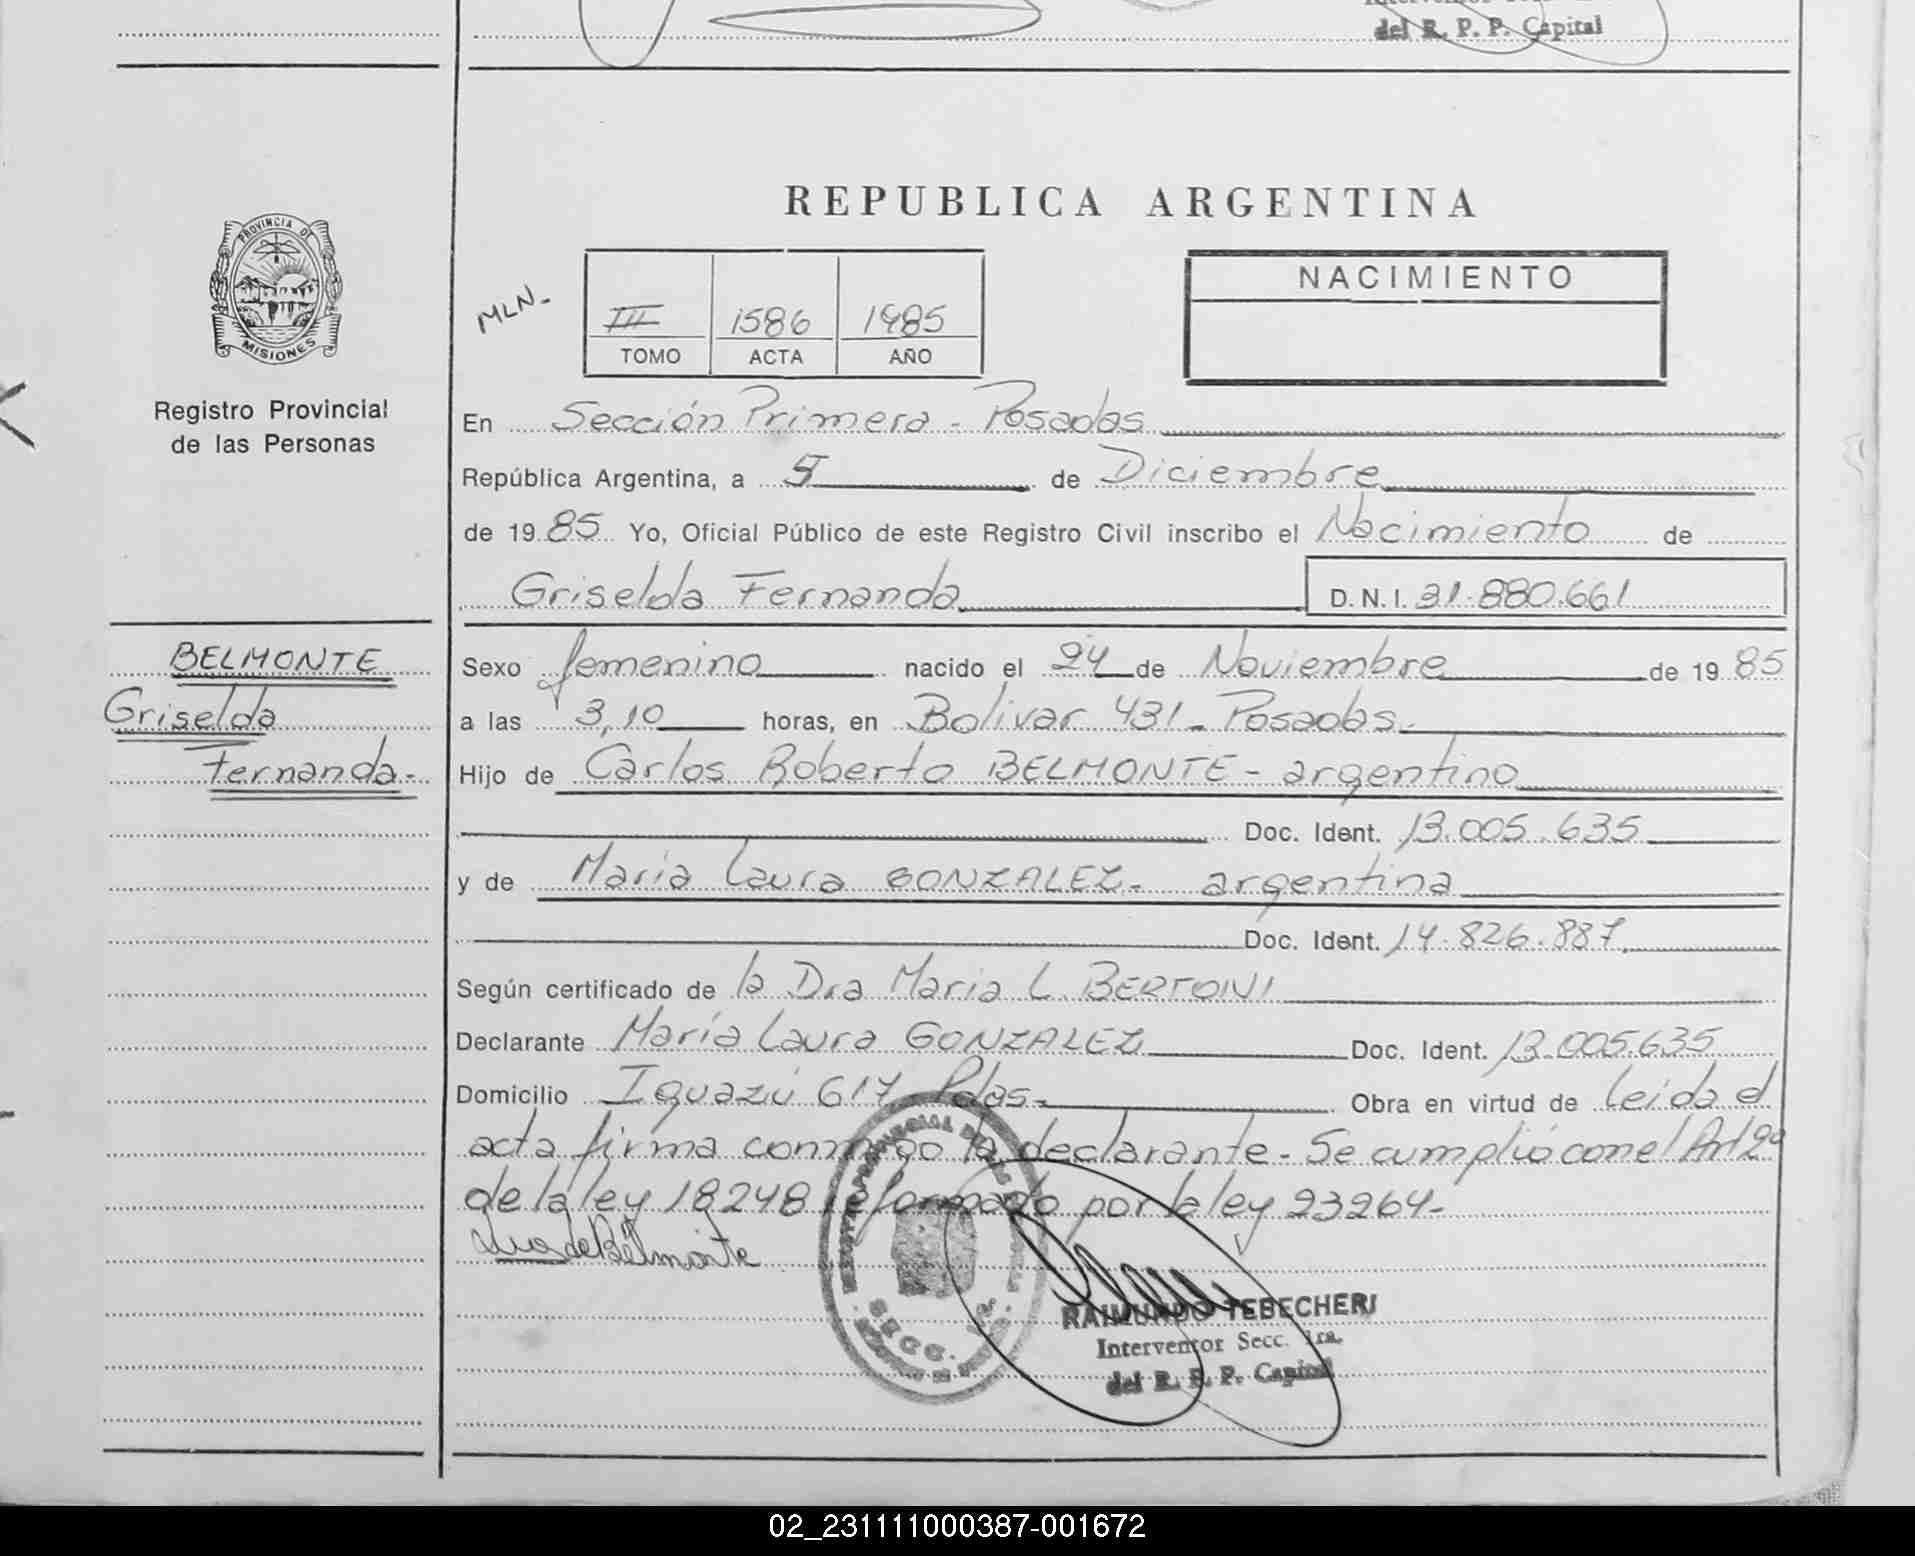 del R. P. P. Capital
REPUBLICA ARGENTINA
PROVINCIA DE
MISIONES
Registro Provincial
de las Personas
MLN-
III 1586 1985
TOMO ACTA AÑO
NACIMIENTO
En Sección Primera - Posadas
República Argentina, a 5 de Diciembre
de 19 85 Yo, Oficial Público de este Registro Civil inscribo el Nacimiento de
Griselda Fernanda D.N.I. 31.880.661
BELMONTE
Griselda
Fernanda-
Sexo femenino nacido el 24 de Noviembre de 19 85
a las 3,10 horas, en Bolivar 431- Posadas.
Hijo de Carlos Roberto BELMONTE - argentino
Doc. Ident. 13.005.635
y de María Laura GONZALEZ- argentina
Doc. Ident. 14.826.887.
Según certificado de la Dra Maria L. BERTONI
Declarante María Laura GONZALEZ Doc. Ident. 13.005.635
Domicilio Iguazú 617 Pdas- Obra en virtud de leida el
acta firma conmigo la declarante - Se cumplió con el Art 2º
de la ley 18248 reformado por la ley 23264-
de Belmonte
SECC. 1ra
RAIMUNDO TEBECHERI
Interventor Secc. 1ra.
del R. P. P. Capital
02_231111000387-001672